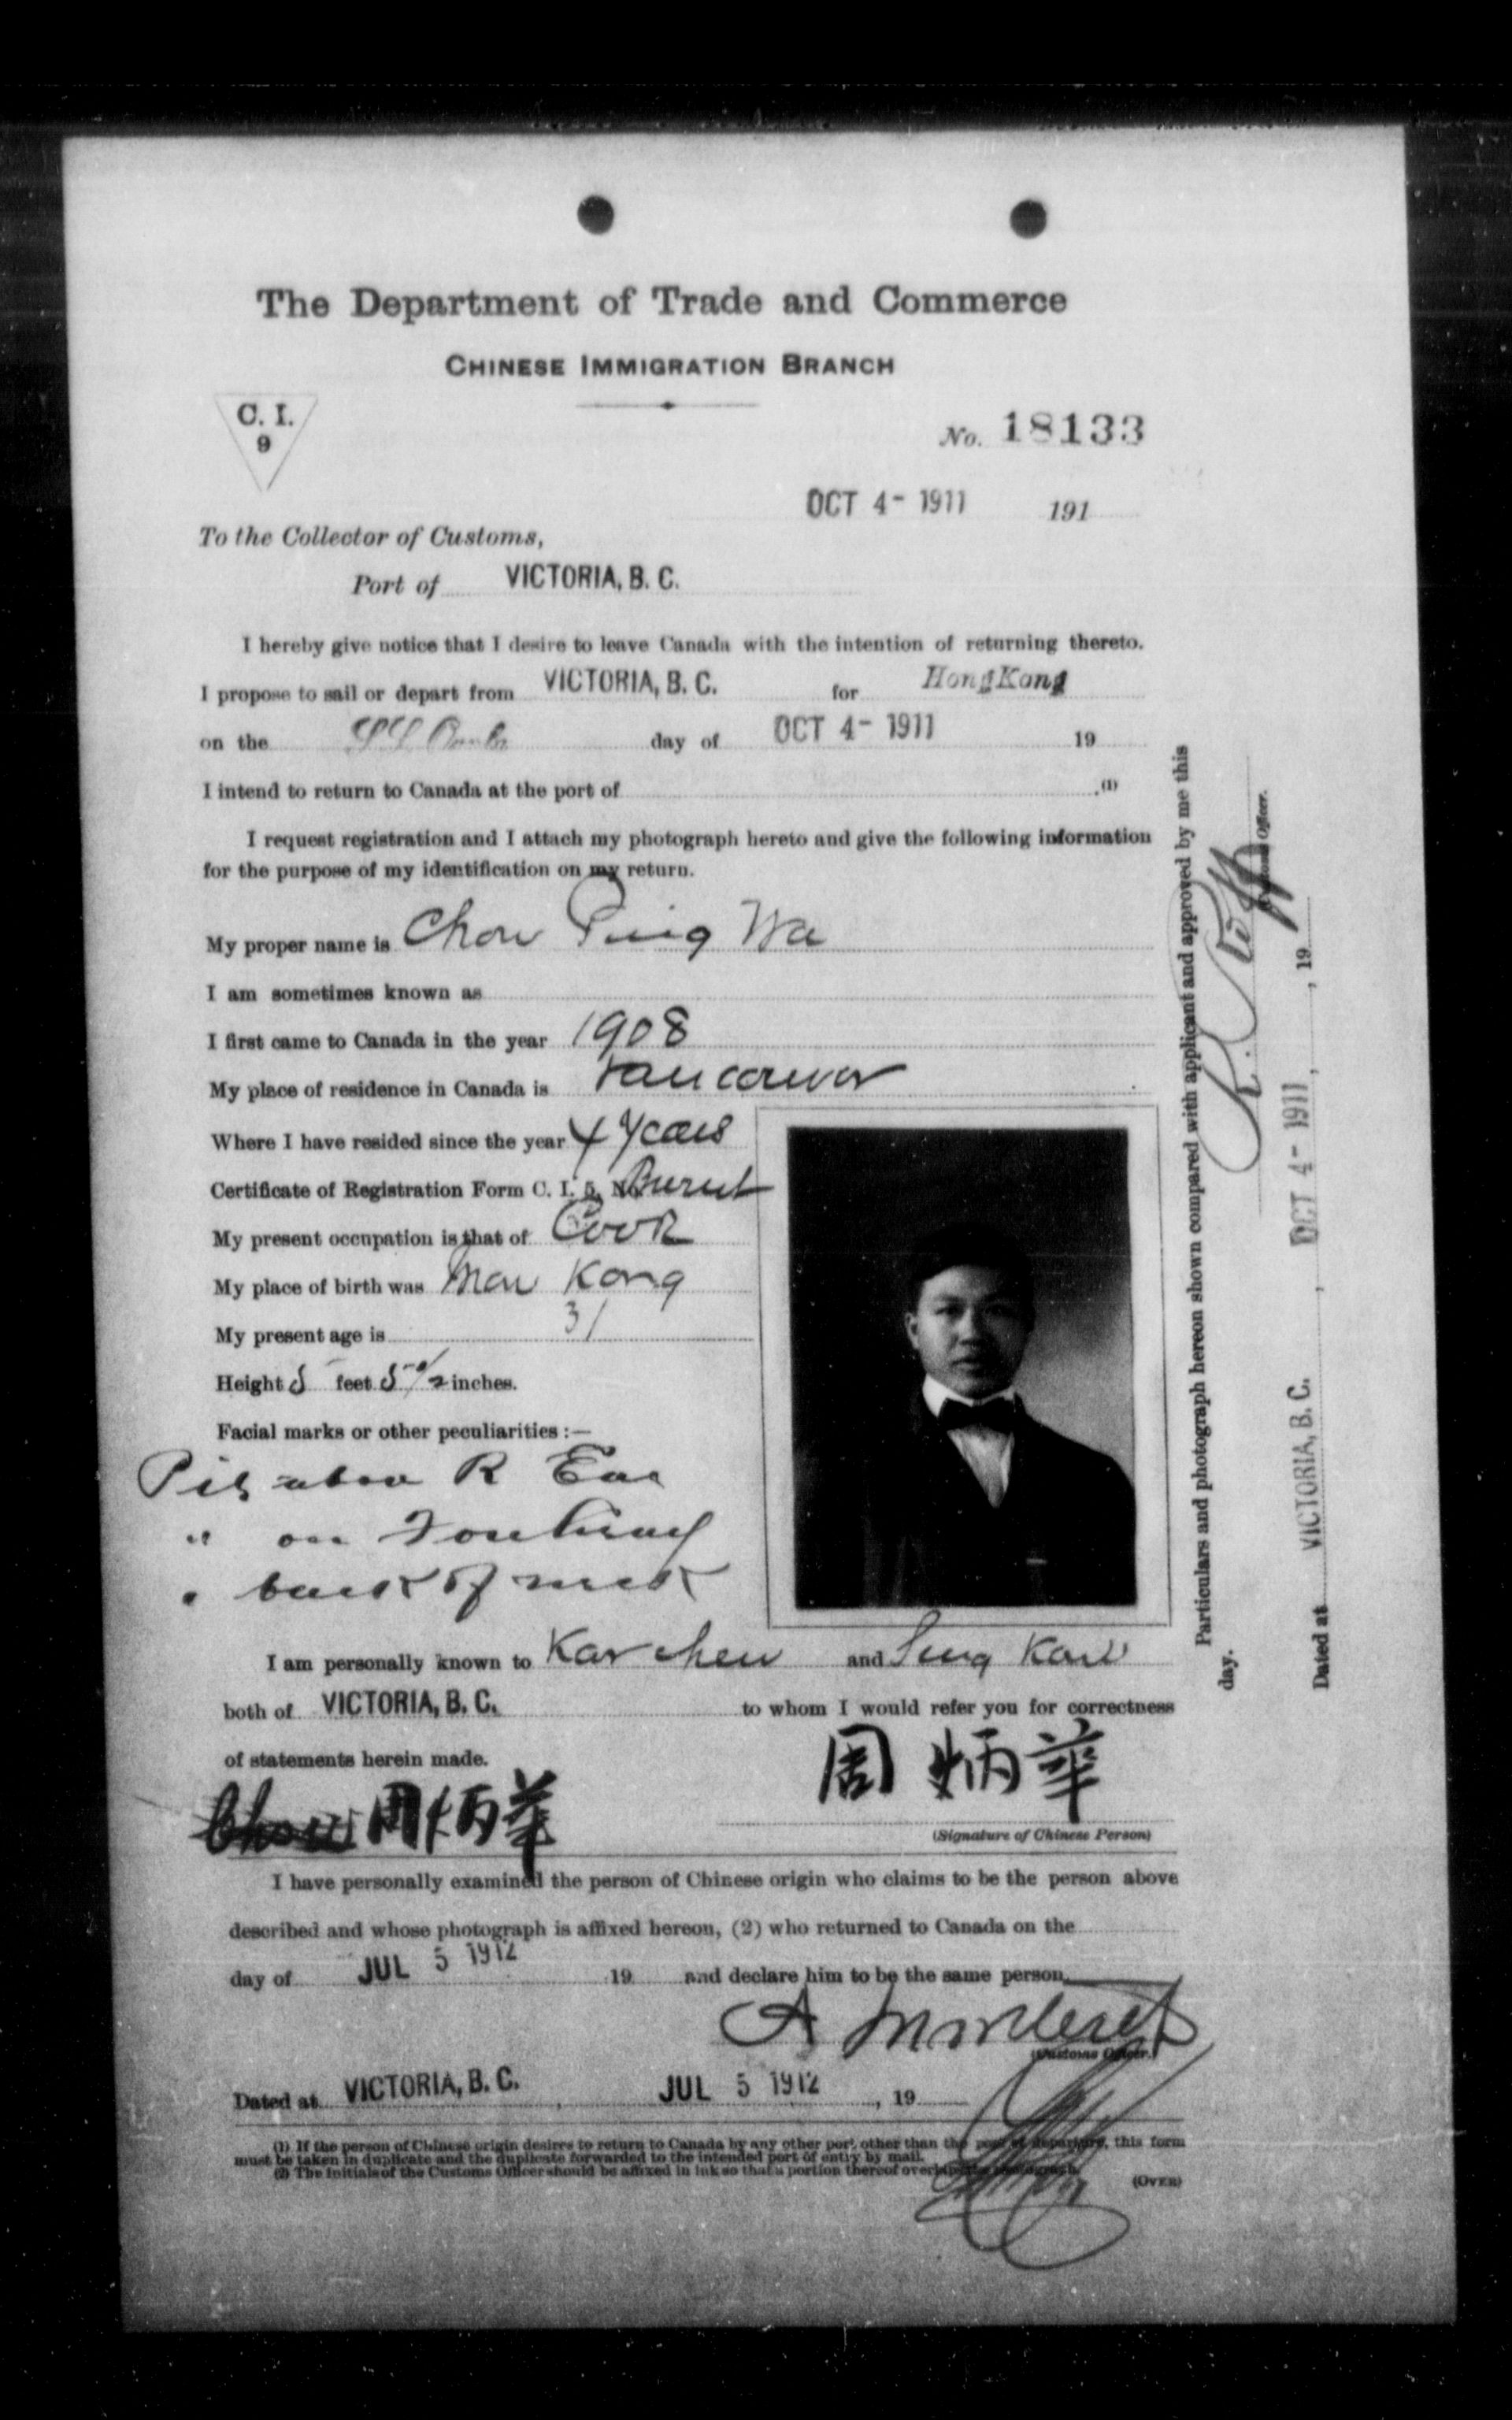 The Department of Trade and Commerce
CHINESE IMMIGRATION BRANCH
C. I.
9
No. 18133
OCT 4- 1911 191
To the Collector of Customs,
Port of VICTORIA, B. C.
I hereby give notice that I desire to leave Canada with the intention of returning thereto.
I propose to sail or depart from VICTORIA, B. C. for HongKong
on the day of OCT 4- 1911 19
I intend to return to Canada at the port of .(1)
I request registration and I attach my photograph hereto and give the following information
for the purpose of my identification on my return.
My proper name is Chow Ping Wa
I am sometimes known as
I first came to Canada in the year 1908
My place of residence in Canada is Vancouver
Where I have resided since the year 4 years
Certificate of Registration Form C. I. 5, No. Burnt
My present occupation is that of Cook
My place of birth was Kong
My present age is 31
Height 5 feet 5 1/2 inches.
Facial marks or other peculiarities :—
Pit above R Ear
" on Forehead
" back of neck
I am personally known to Kar and Sung
both of VICTORIA, B. C. to whom I would refer you for correctness
of statements herein made.
周炳華
Chow 周炳華
(Signature of Chinese Person)
I have personally examined the person of Chinese origin who claims to be the person above
described and whose photograph is affixed hereon, (2) who returned to Canada on the
day of JUL 5 1912 19 and declare him to be the same person
(Customs Officer.)
Dated at VICTORIA, B. C. , JUL 5 1912 , 19
(1) If the person of Chinese origin desires to return to Canada by any other port other than the port of departure, this form
must be taken in duplicate and the duplicate forwarded to the intended port of entry by mail.
(2) The initials of the Customs Officer should be affixed in ink so that a portion thereof overlaps the photograph.
(OVER)
Particulars and photograph hereon shown compared with applicant and approved by me this
day.
Customs Officer.
Dated at VICTORIA, B. C. , OCT 4- 1911 , 19